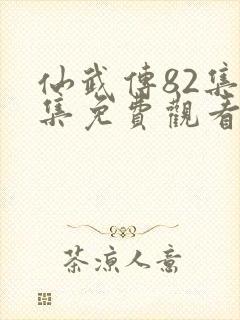 仙武傳82集
集免費觀看
茶凉人意